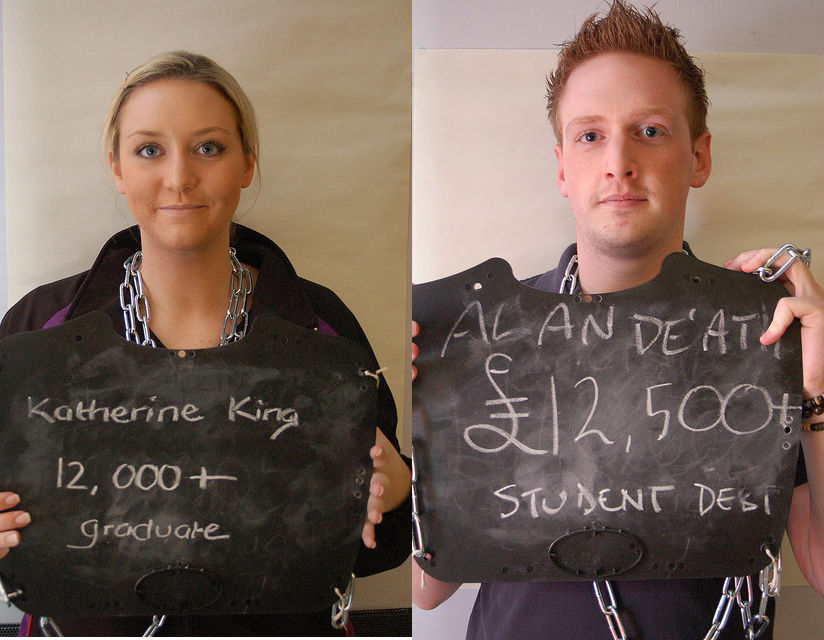 Katherine King
12,000+
graduate
ALAN DE'ATH
£12,500+
STUDENT DEBT